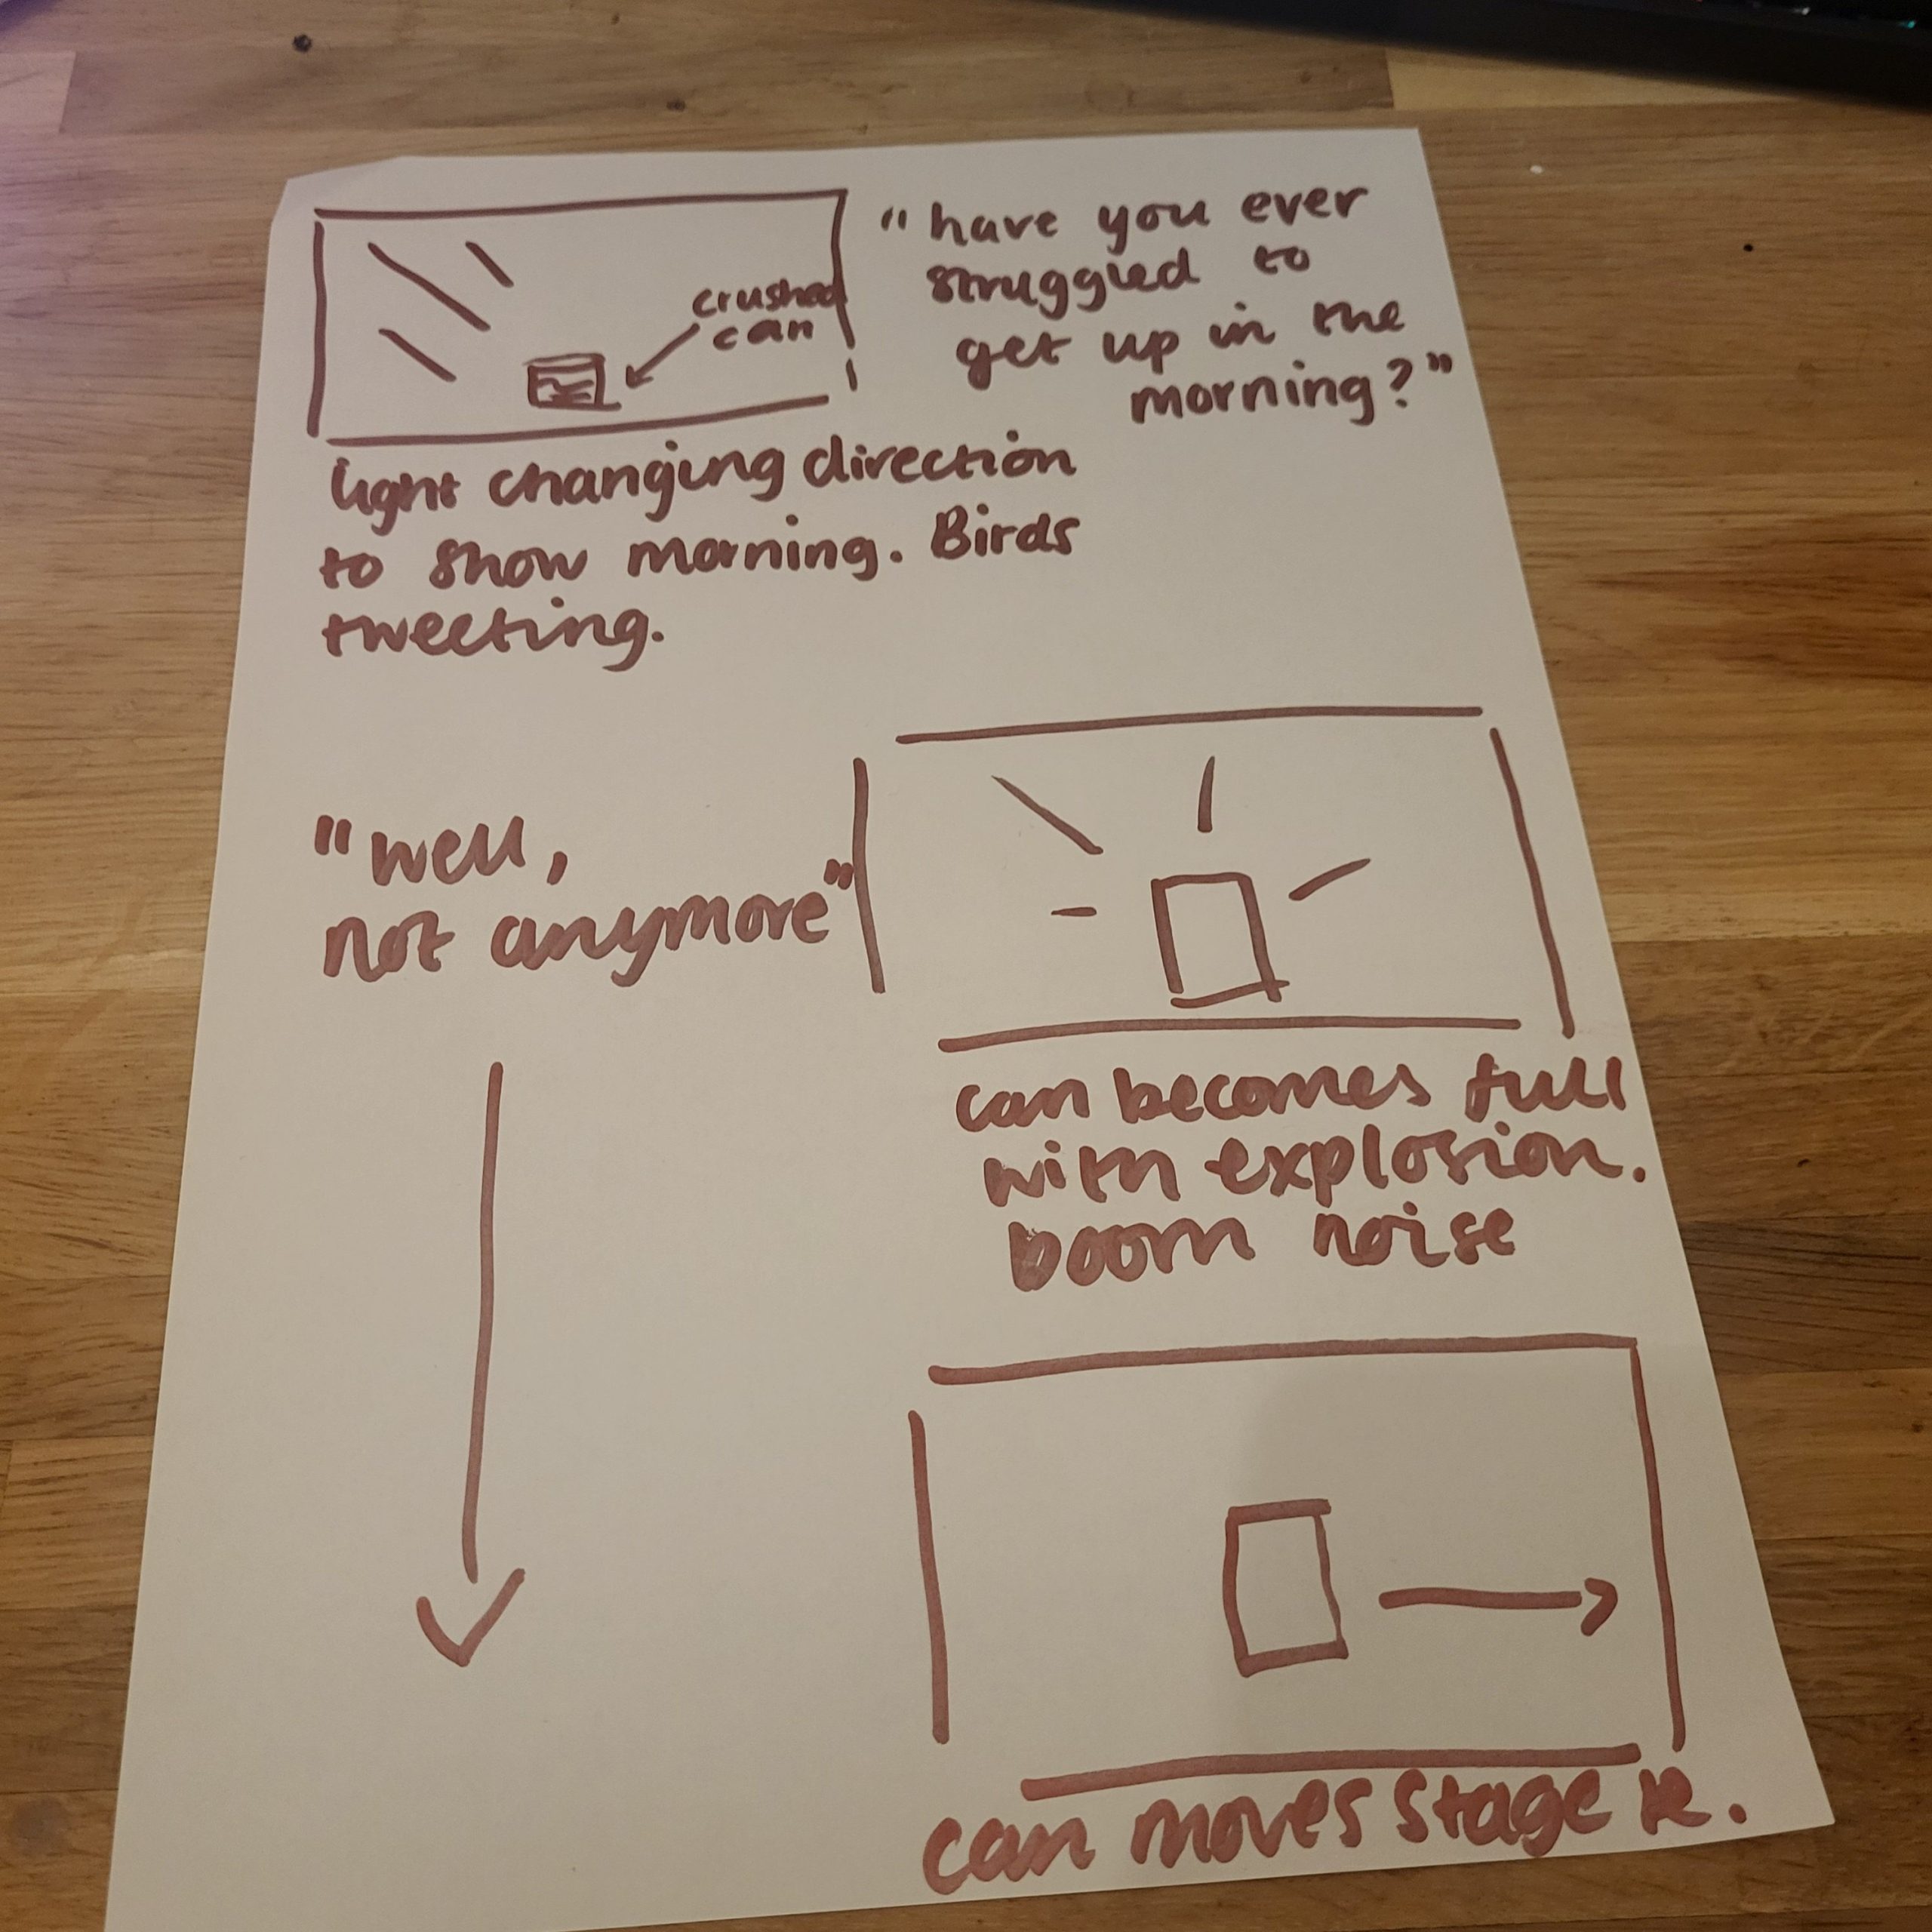 crushed
can
"have you ever
struggled to
get up in the
morning?"
light changing direction
to show morning. Birds
tweeting.
"well,
not anymore"
can becomes full
with explosion.
boom noise
can moves stage R.